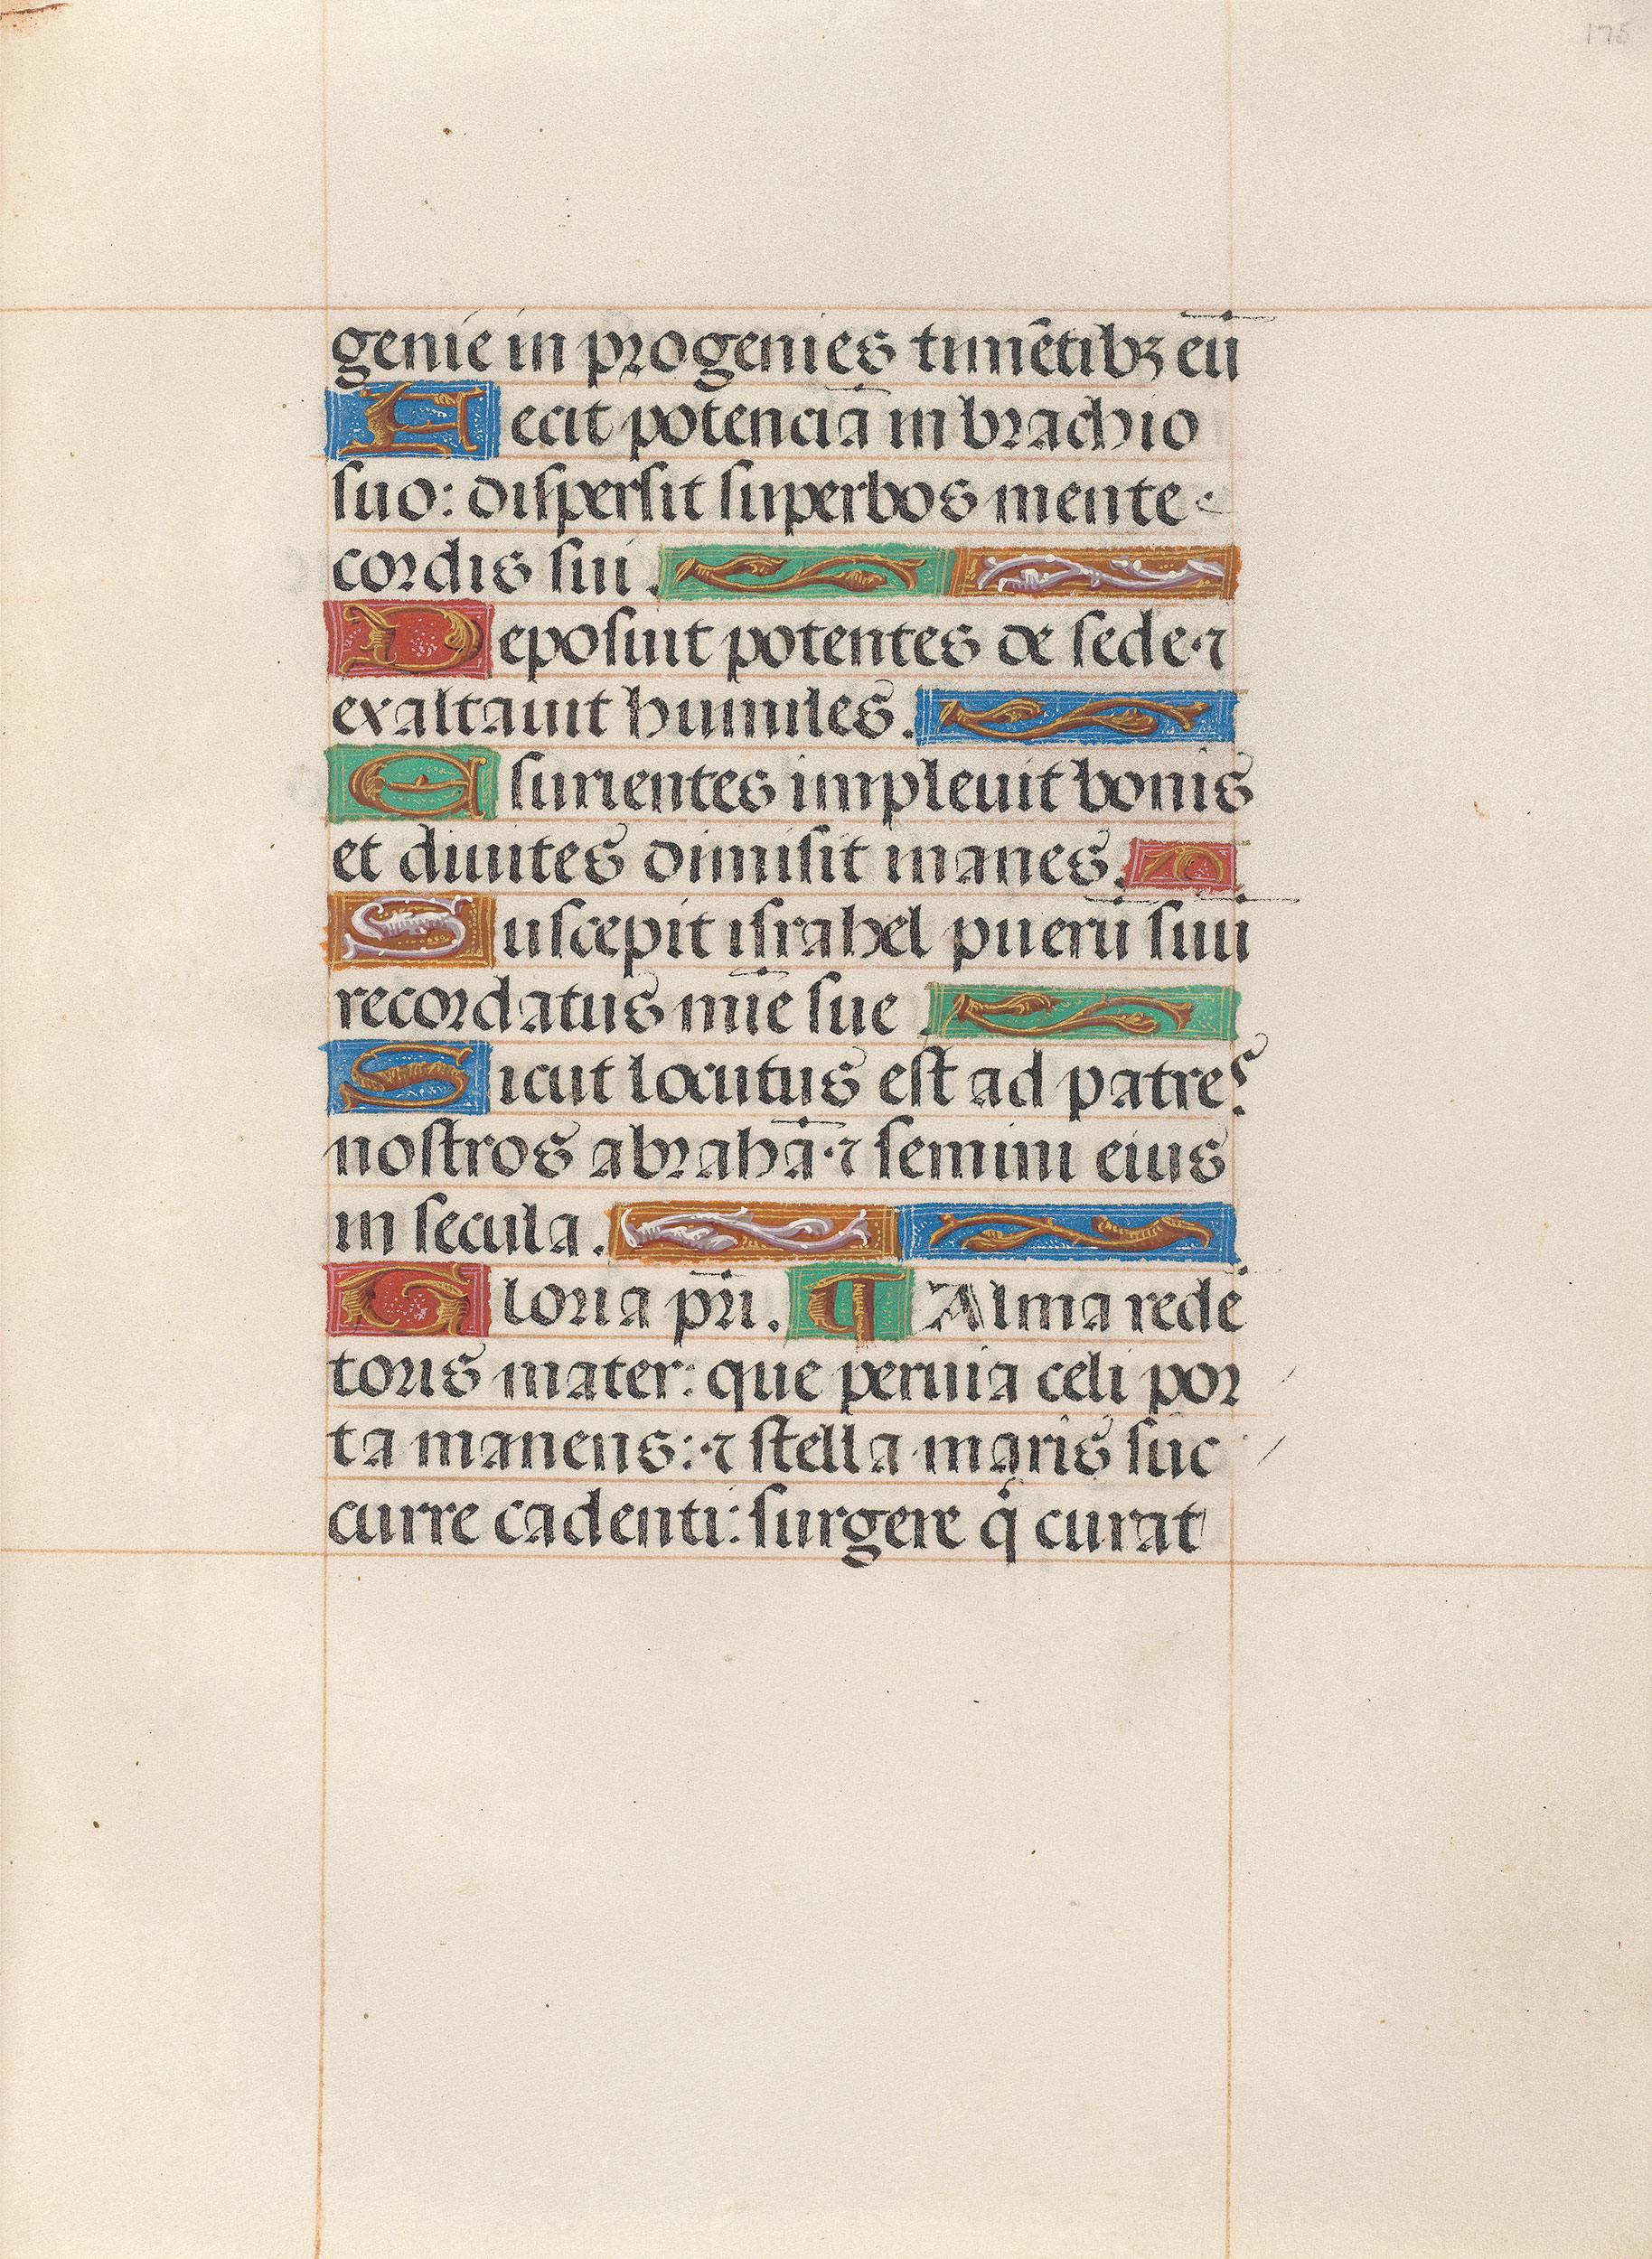 175
genie in progenies timētibꝫ eū
Fecit potenciā in brachio
suo: dispersit superbos mente
cordis sui.
Deposuit potentes de sede·⁊
exaltauit humiles.
Esurientes impleuit bonis
et diuites dimisit inanes.
Suscepit israhel puerū suū
recordatus mīe sue.
Sicut locutus est ad patres
nostros abrahā·⁊ semini eius
in secula.
Gloria pr̄i. A Alma redē
toris mater: que peruia celi por
ta manens:·⁊ stella maris suc
curre cadenti: surgere qͥ curat